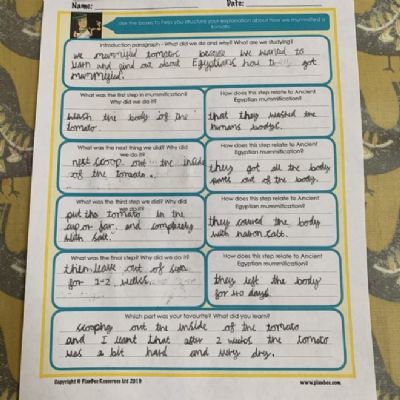 Name:
Date:
Use the boxes to help you structure your explanation about how we mummified a
tomato.
Introduction paragraph - What did we do and why? What are we studying?
we mummified tomatos because we wanted to
learn and find out about Egyptians how got
mummified.
What was the first step in mummification?
Why did we do it?
wash the body of the
tomato.
How does this step relate to Ancient
Egyptian mummification?
that they washed the
humans bodys.
What was the next thing we did? Why did
we do it?
next scoop out the inside
of the tomato.
How does this step relate to Ancient
Egyptian mummification?
they got all the body
parts out of the body.
What was the third step we did? Why did
we do it?
put the tomato in the
cup or jar and completely
with salt.
How does this step relate to Ancient
Egyptian mummification?
they covered the body
with natron salt.
What was the final step? Why did we do it?
then leave out of
for 1-2 weeks.
How does this step relate to Ancient
Egyptian mummification?
they left the body
for 40 days
Which part was your favourite? What did you learn?
scooping out the inside of the tomato
and I learnt that after 2 weeks the tomato
was a bit hard and very dry.
Copyright © PlanBee Resources Ltd 2019
www.planbee.com